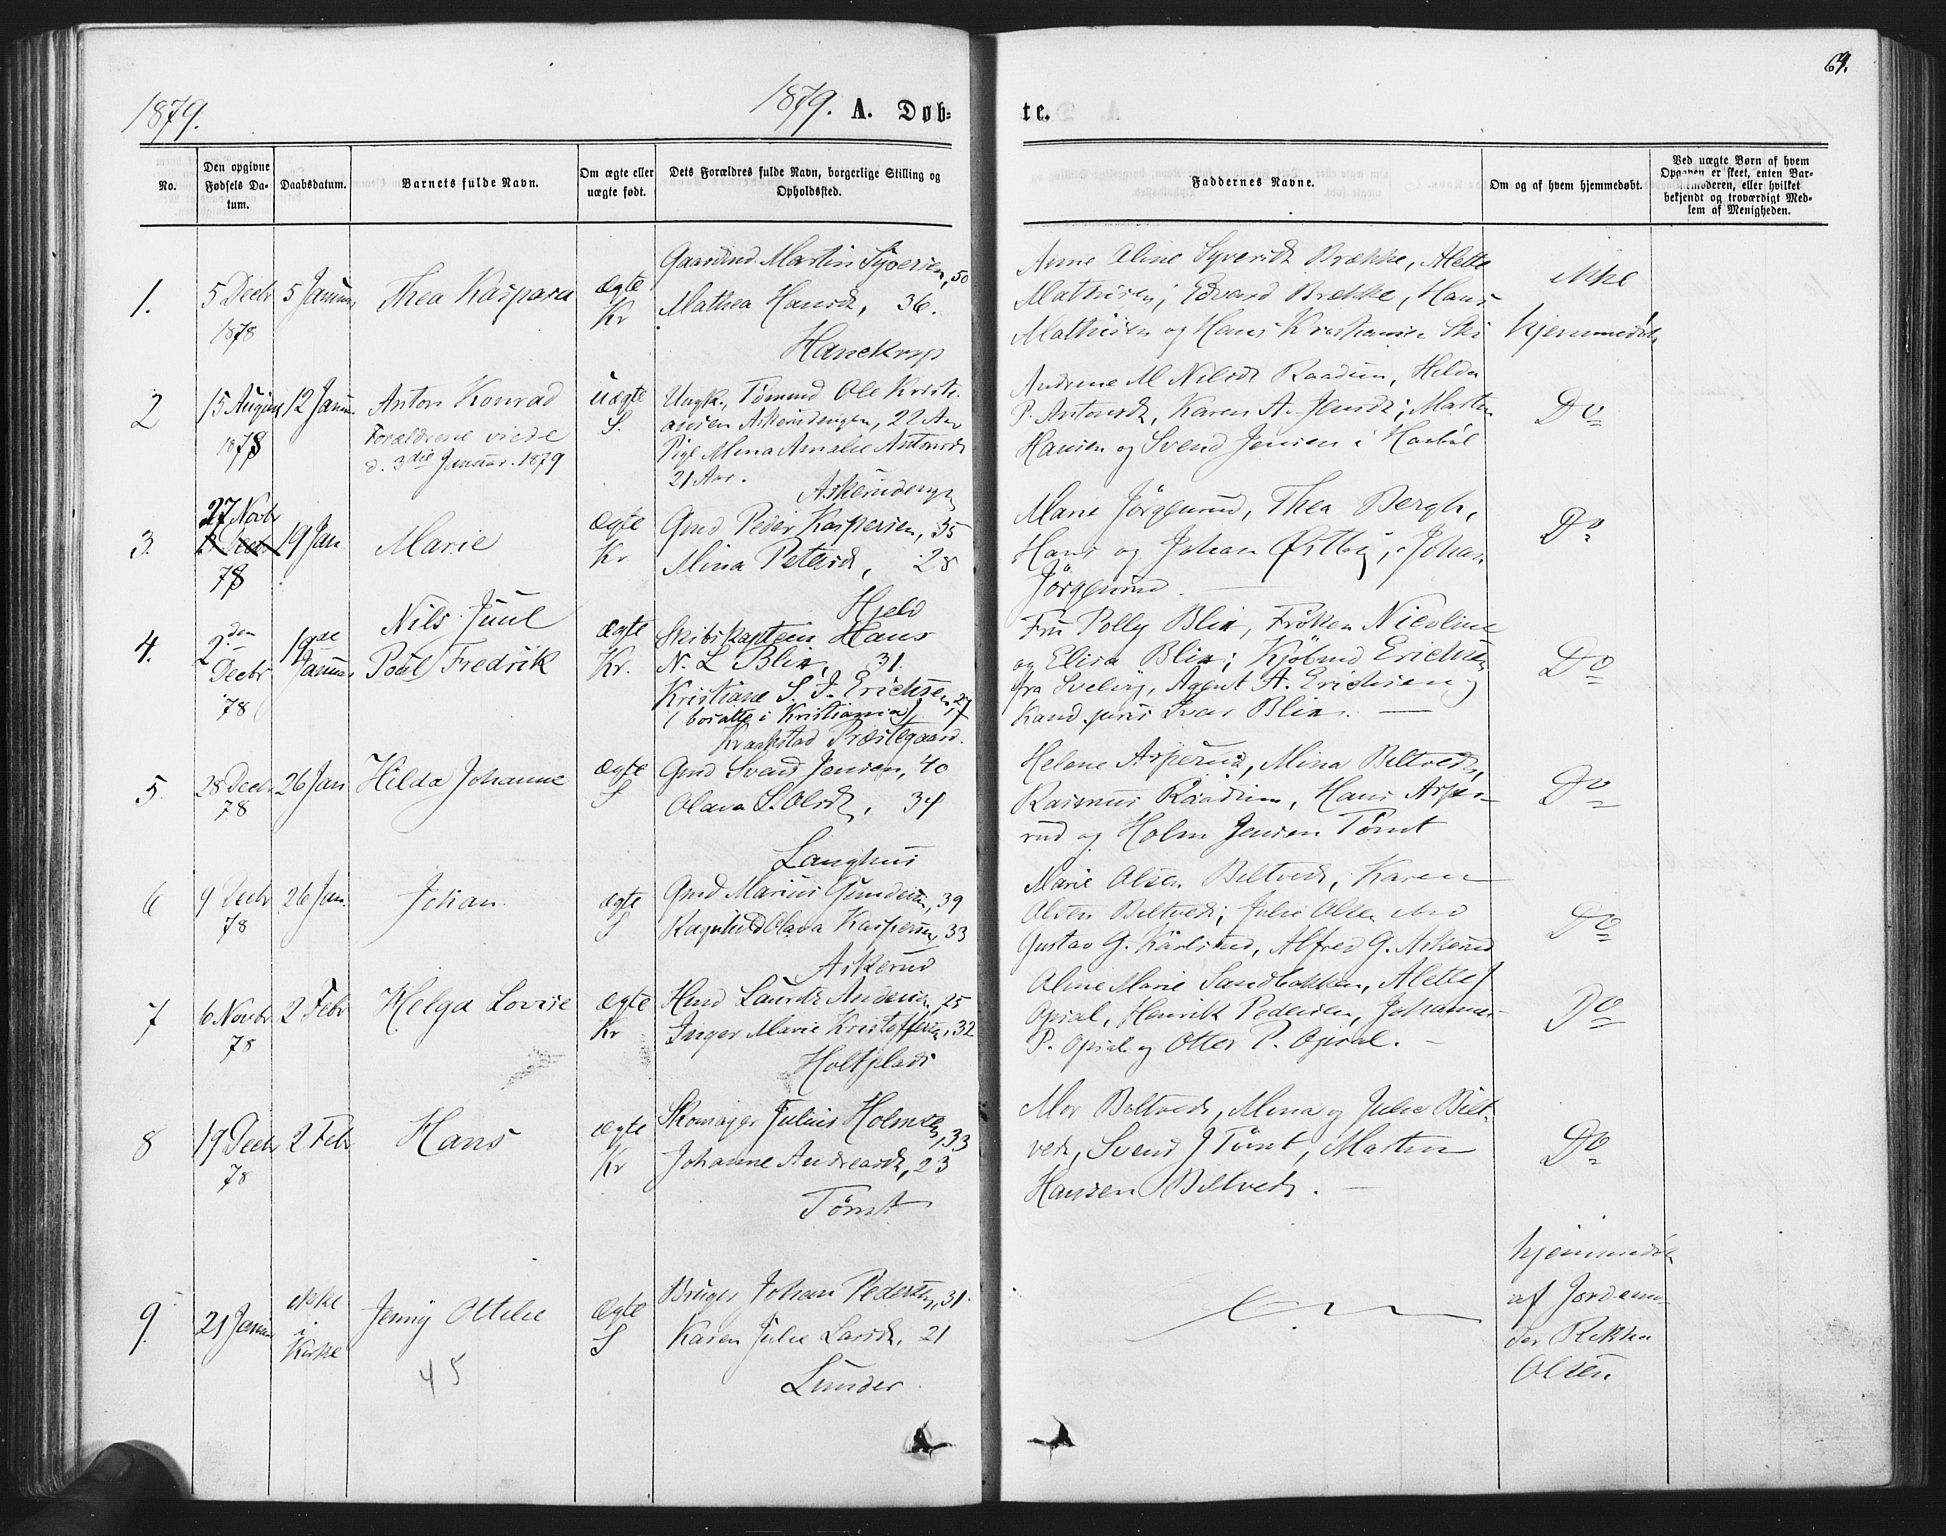 69.
1879.
1879. A. Døb-
te.
No.
Den opgivne Fødsels Da-
tum.
Daabsdatum.
Barnets fulde Navn.
Om ægte eller
uægte født.
Dets Forældres fulde Navn, borgerlige Stilling og
Opholdssted.
Faddernes Navne.
Om og af hvem hjemmedøbt.
Ved uægte Børn af hvem
Opgaven er skeet, enten Bar-
nemoderen, eller hvilket
bekjendt og troværdigt Med-
lem af Menigheden.
1.
5 Decbr
1878
5 Januar
Thea Kaspara
ægte
Kr
Gaardmd Martin Syversen, 50
Mathea Hansdt, 36.
Hanekrop
Anne Aline Syversdt Brække, Alette
Mathisen; Edvard Brække, Hans
Mathisen og Hans Kristiansen Ski
ikke
hjemmedøbt
2
15 August
1878
12 Januar
Anton Konrad
Forældrene viede
d. 3die Januar 1879
uægte
S.
Ungk., Tømmd Ole Kristi-
ansen Askerudengen, 22 Aar
Pige Mina Amalie Antonsdt
21 Aar.
Askerudengen
Andrine M Nilsdt Raadum, Helda
P. Antonsdt, Karen A. Jensdt; Martin
Hansen og Svend Jensen i Haabøl
Do
3.
27 Novbr
78
19 Jan
Marie
ægte
Kr
Gmd Peder Kaspersen, 35
Mina Petersdt, 28
Hjeld
Marie Jørgenrud, Thea Bergh,
Hans og Johan Østby, Johan
Jørgenrud.
Do
4.
2den
Decbr
78
19de
Januar
Nils Juul
Poul Fredrik
ægte
Kr.
Skibskaptein Hans
N. L Blix, 31.
Kristiane S. J. Erichsen, 27
(bosatte i Kristiania)
Kraakstad Præstegaard.
Fru Polly Blix, Frøken Nicoline
og Elisa Blix; Kjøbmd Erichsen
fra Svelvig, Agent A. Erichsen og
Kand. juris Ivar Blix.
Do
5.
28 Decbr
78
26 Jan
Hilda Johanne
ægte
S
Gmd Svend Jensen, 40
Olava S. Olsdt, 34
Langhus
Helene Asperud, Mina Biltvedt,
Rasmus Raadum, Hans Aspe-
rud og Holm Jensen Tømt
Do
6
9 Decbr
78
26 Jan.
Johan
ægte
S
Gmd Marius Gundersen, 39
Ragnhild Olava Kaspersen, 33
Askerud
Marie Olsen Biltvedt, Karen
Olsen Biltvedt; Julie Olsen
Gustav G. Karlsrud, Alfred G. Askerud
Do
7
6 Novbr
78
2 Febr
Helga Lovise
ægte
Kr
Hmd Laurits Andersen, 25
Inger Marie Kristoffersen, 32
Holtplads
Aline Marie Sandbakken, Alette
Opsal, Henrik Pedersen, Johannes
P. Opsal og Otter P. Opsal.
Do
8
19 Decbr
78
2 Febr
Hans
ægte
Kr
Skomager Julius Holmsen, 33
Johanne Andreasdt, 23
Tømt
Mor Biltvedt, Mina og Julie Bilt-
vedt, Svend J Tømt, Martin
Hansen Biltvedt.
Do
9.
21 Januar
ikke
i
Kirke
Jenny Ottilie
45
ægte
S
Bruger Johan Pedersen, 31.
Karen Julie Larsdt. 21
Lunder
hjemmedøbt
af Jordemo-
der Rikka
Olsen